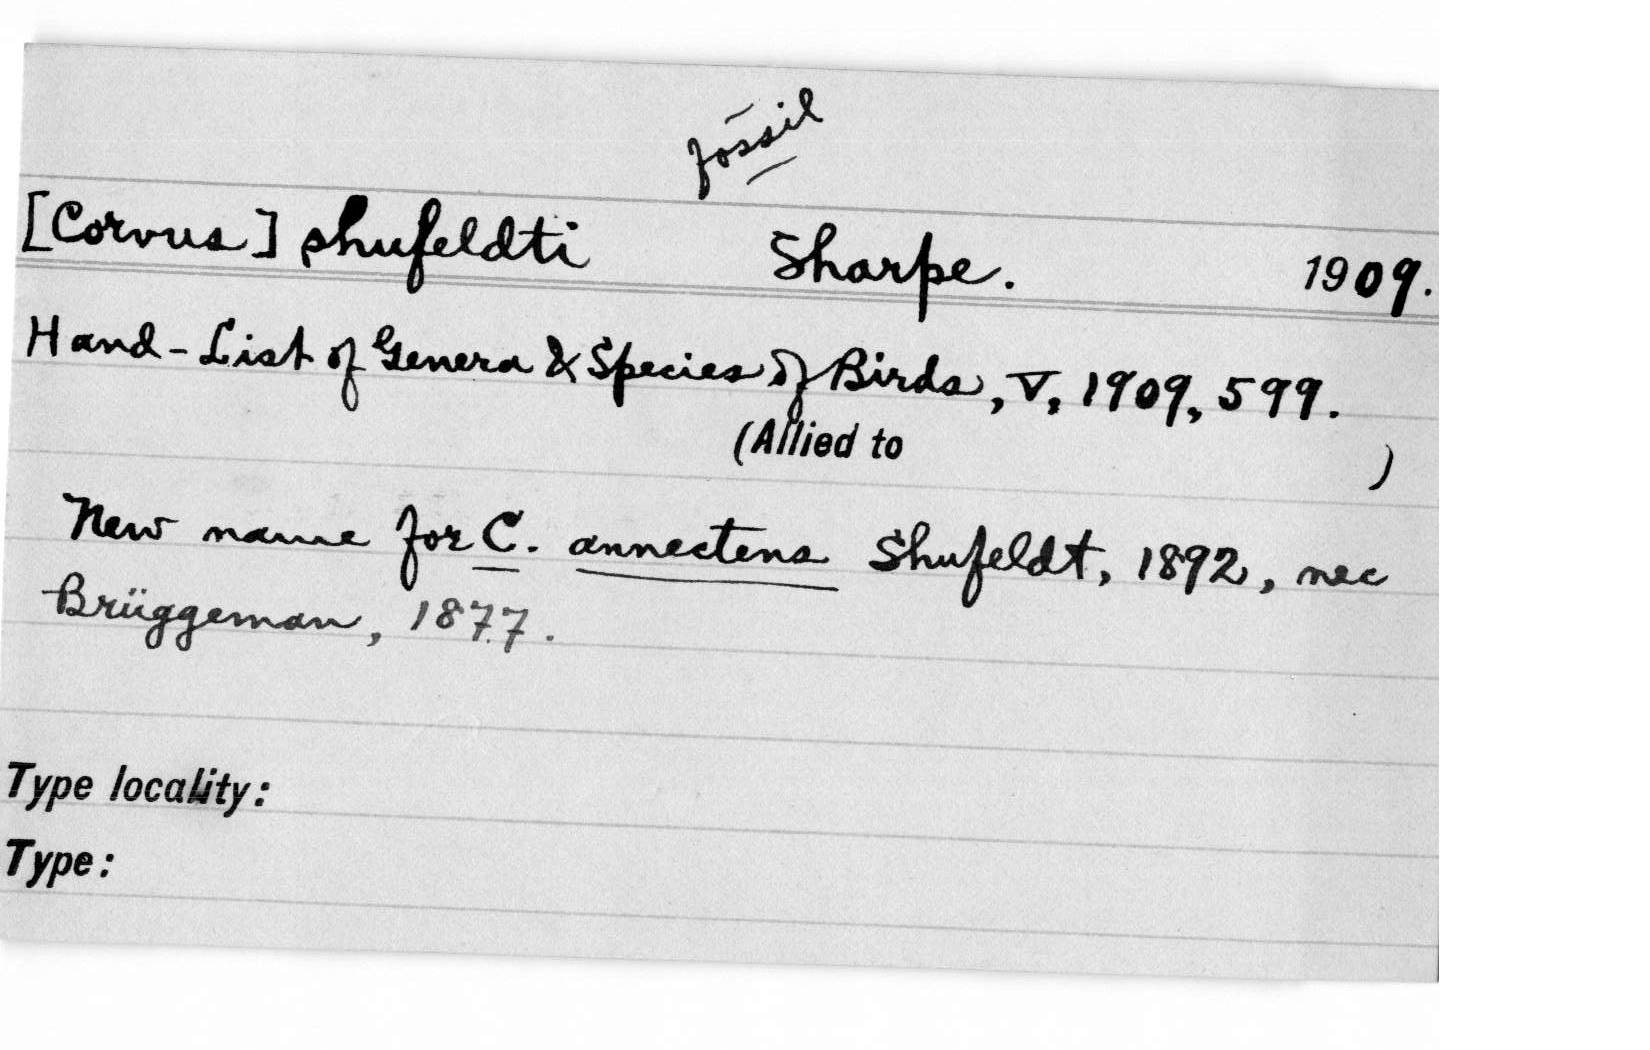 fossil
[Corvus] shufeldti Sharpe. 1909.
Hand-List of Genera & Species of Birds, V, 1909, 599.
(Allied to )
New name for C. annectens Shufeldt, 1892, nec
Brüggeman, 1877.
Type locality:
Type: